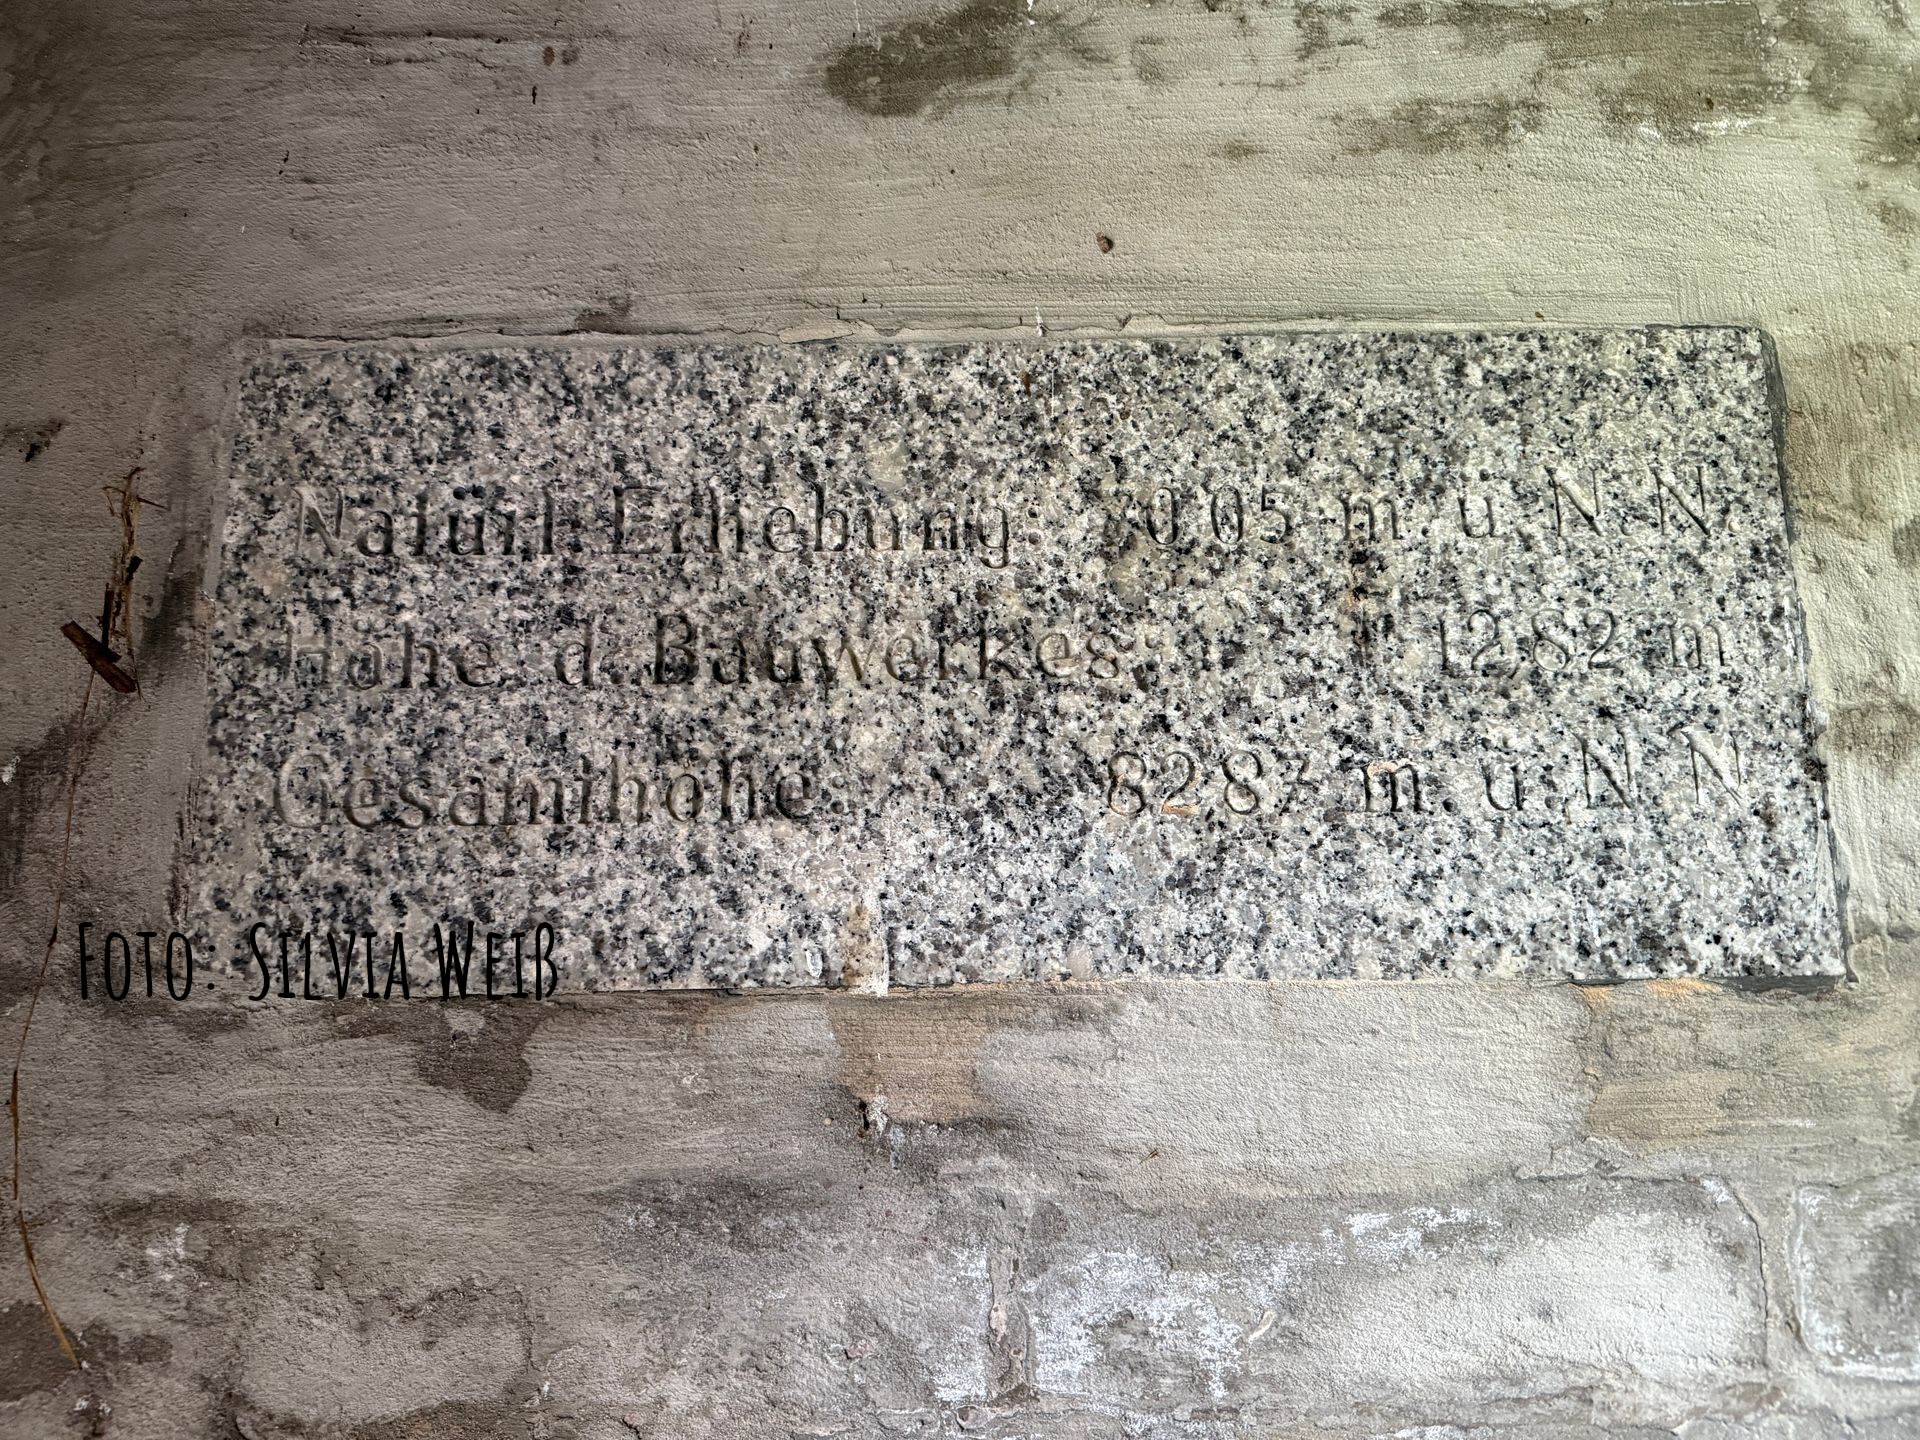 Natürl. Erhebung: 70,05 m. ü. N. N.
Höhe d. Bauwerkes: 12,82 m.
Gesamthöhe: 82,87 m. ü. N. N.
Foto: Silvia Weiß